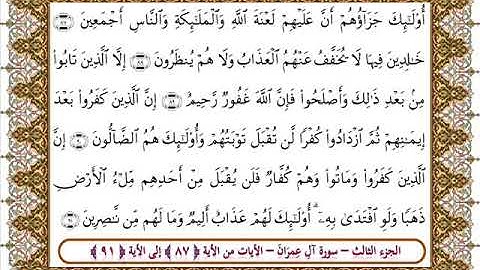 أُوْلَـٰٓئِكَ جَزَآؤُهُمْ أَنَّ عَلَيْهِمْ لَعْنَةَ ٱللَّهِ وَٱلْمَلَـٰٓئِكَةِ وَٱلنَّاسِ أَجْمَعِينَ ﴿٨٧﴾
خَـٰلِدِينَ فِيهَا لَا يُخَفَّفُ عَنْهُمُ ٱلْعَذَابُ وَلَا هُمْ يُنظَرُونَ ﴿٨٨﴾ إِلَّا ٱلَّذِينَ تَابُواْ
مِنۢ بَعْدِ ذَٰلِكَ وَأَصْلَحُواْ فَإِنَّ ٱللَّهَ غَفُورٌ رَّحِيمٌ ﴿٨٩﴾ إِنَّ ٱلَّذِينَ كَفَرُواْ بَعْدَ
إِيمَـٰنِهِمْ ثُمَّ ٱزْدَادُواْ كُفْرًا لَّن تُقْبَلَ تَوْبَتُهُمْ وَأُوْلَـٰٓئِكَ هُمُ ٱلضَّآلُّونَ ﴿٩٠﴾ إِنَّ
ٱلَّذِينَ كَفَرُواْ وَمَاتُواْ وَهُمْ كُفَّارٌ فَلَن يُقْبَلَ مِنْ أَحَدِهِم مِّلْءُ ٱلْأَرْضِ
ذَهَبًا وَلَوِ ٱفْتَدَىٰ بِهِۦٓ ۗ أُوْلَـٰٓئِكَ لَهُمْ عَذَابٌ أَلِيمٌ وَمَا لَهُم مِّن نَّـٰصِرِينَ ﴿٩١﴾
الجزء الثالث – سورة آلِ عِمرَان – الآيات من الأية ﴿٨٧﴾ إلى الأية ﴿٩١﴾